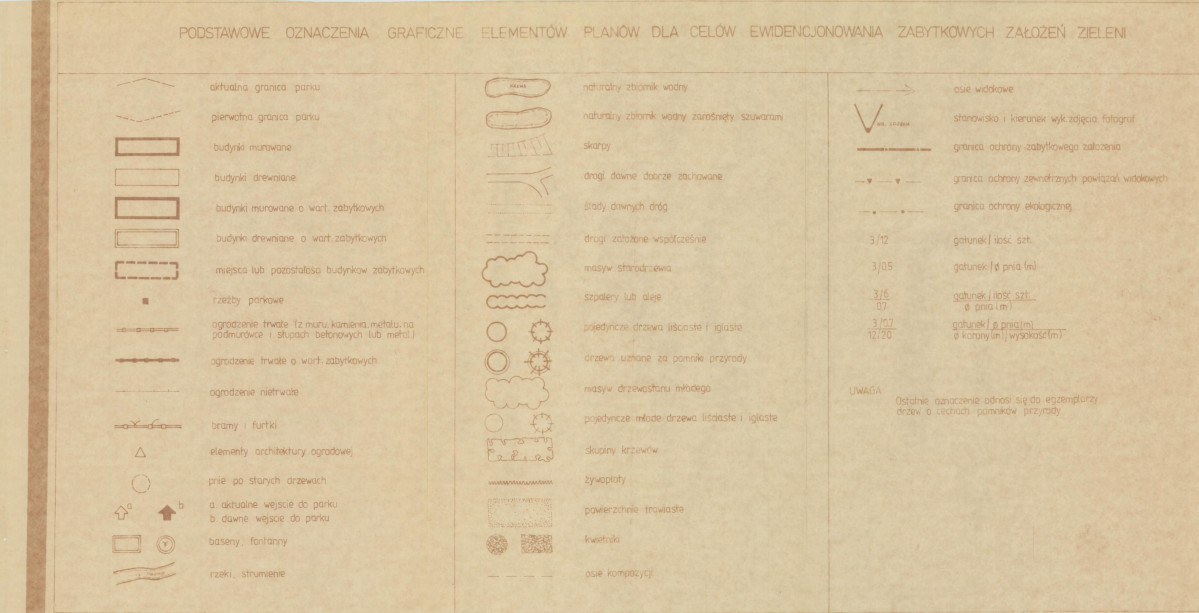 PODSTAWOWE OZNACZENIA GRAFICZNE ELEMENTÓW PLANÓW DLA CELÓW EWIDENCJONOWANIA ZABYTKOWYCH ZAŁOŻEŃ ZIELENI
aktualna granica parku
pierwotna granica parku
budynki murowane
budynki drewniane
budynki murowane o wart. zabytkowych
budynki drewniane o wart. zabytkowych
miejsca lub pozostałości budynków zabytkowych
rzeźby parkowe
ogrodzenie trwałe (z muru, kamienia, metalu, na
podmurówce i słupach betonowych lub metal.)
ogrodzenie trwałe o wart. zabytkowych
ogrodzenie nietrwałe
bramy i furtki
elementy architektury ogrodowej
pnie po starych drzewach
a b
a. aktualne wejście do parku
b. dawne wejście do parku
baseny, fontanny
rzeki, strumienie
naturalny zbiornik wodny
naturalny zbiornik wodny zarośnięty szuwarami
skarpy
drogi dawne dobrze zachowane
ślady dawnych dróg
drogi założone współcześnie
masyw starodrzewia
szpalery lub aleje
pojedyncze drzewa liściaste i iglaste
drzewa uznane za pomniki przyrody
masyw drzewostanu młodego
pojedyncze młode drzewa liściaste i iglaste
skupiny krzewów
żywopłoty
powierzchnie trawiaste
kwietniki
osie kompozycji
osie widokowe
stanowiska i kierunek wyk. zdjęcia fotograf.
granica ochrony zabytkowego założenia
granica ochrony zewnętrznych powiązań widokowych
granica ochrony ekologicznej
3/12 gatunek/ ilość szt.
3/0.5 gatunek/ø pnia (m)
3/6 gatunek/ilość szt.
0.7 ø pnia (m)
3/0.7 gatunek/ø pnia (m)
12/20 ø korony (m)/wysokość (m)
UWAGA:
Ostatnie oznaczenie odnosi się do egzemplarzy
drzew o cechach pomników przyrody.